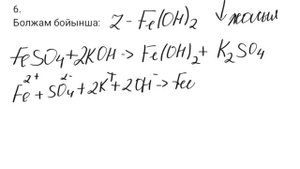 6.
Болжам бойынша: 2 - Fe(OH)₂ ↓ жасыл
FeSO₄ + 2KOH -> Fe(OH)₂ + K₂SO₄
Fe²⁺ + SO₄²⁻ + 2K⁺ + 2OH⁻ -> Fe